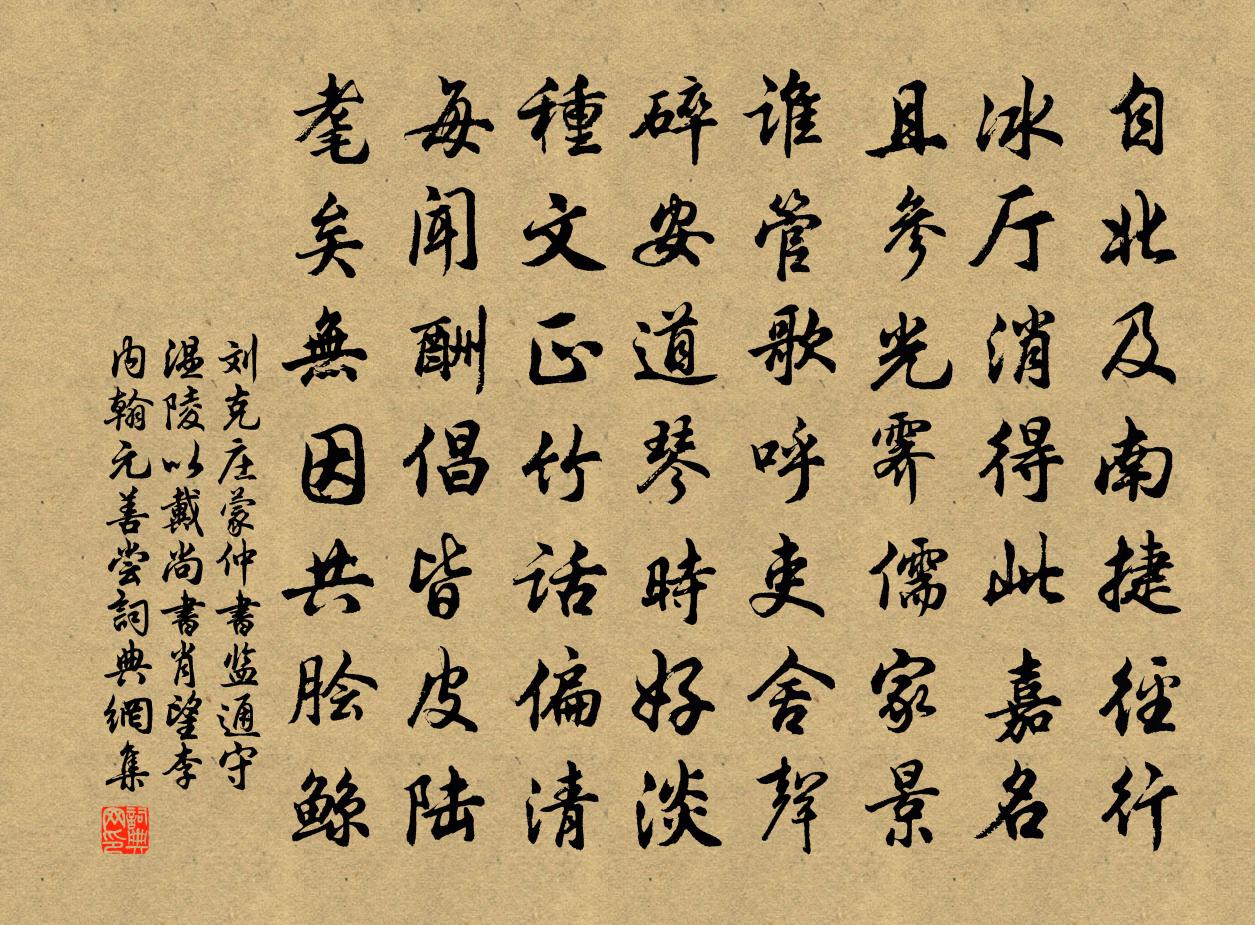 自北及南捷径行
冰厅消得此嘉名
且参光霁儒家景
谁管歌呼吏舍声
碎安道琴時好淡
種文正竹话偏清
每闻酬倡皆皮陆
耄矣無因共脍鲸
刘克庄蒙仲書监通守
温陵以戴尚書肖望李
内翰元善尝詞典網集
詞典网印